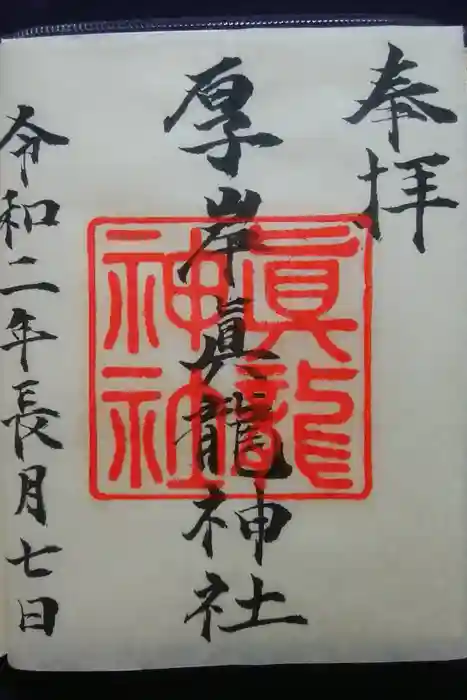 奉拝
厚岸眞龍神社
眞龍神社
令和二年長月七日